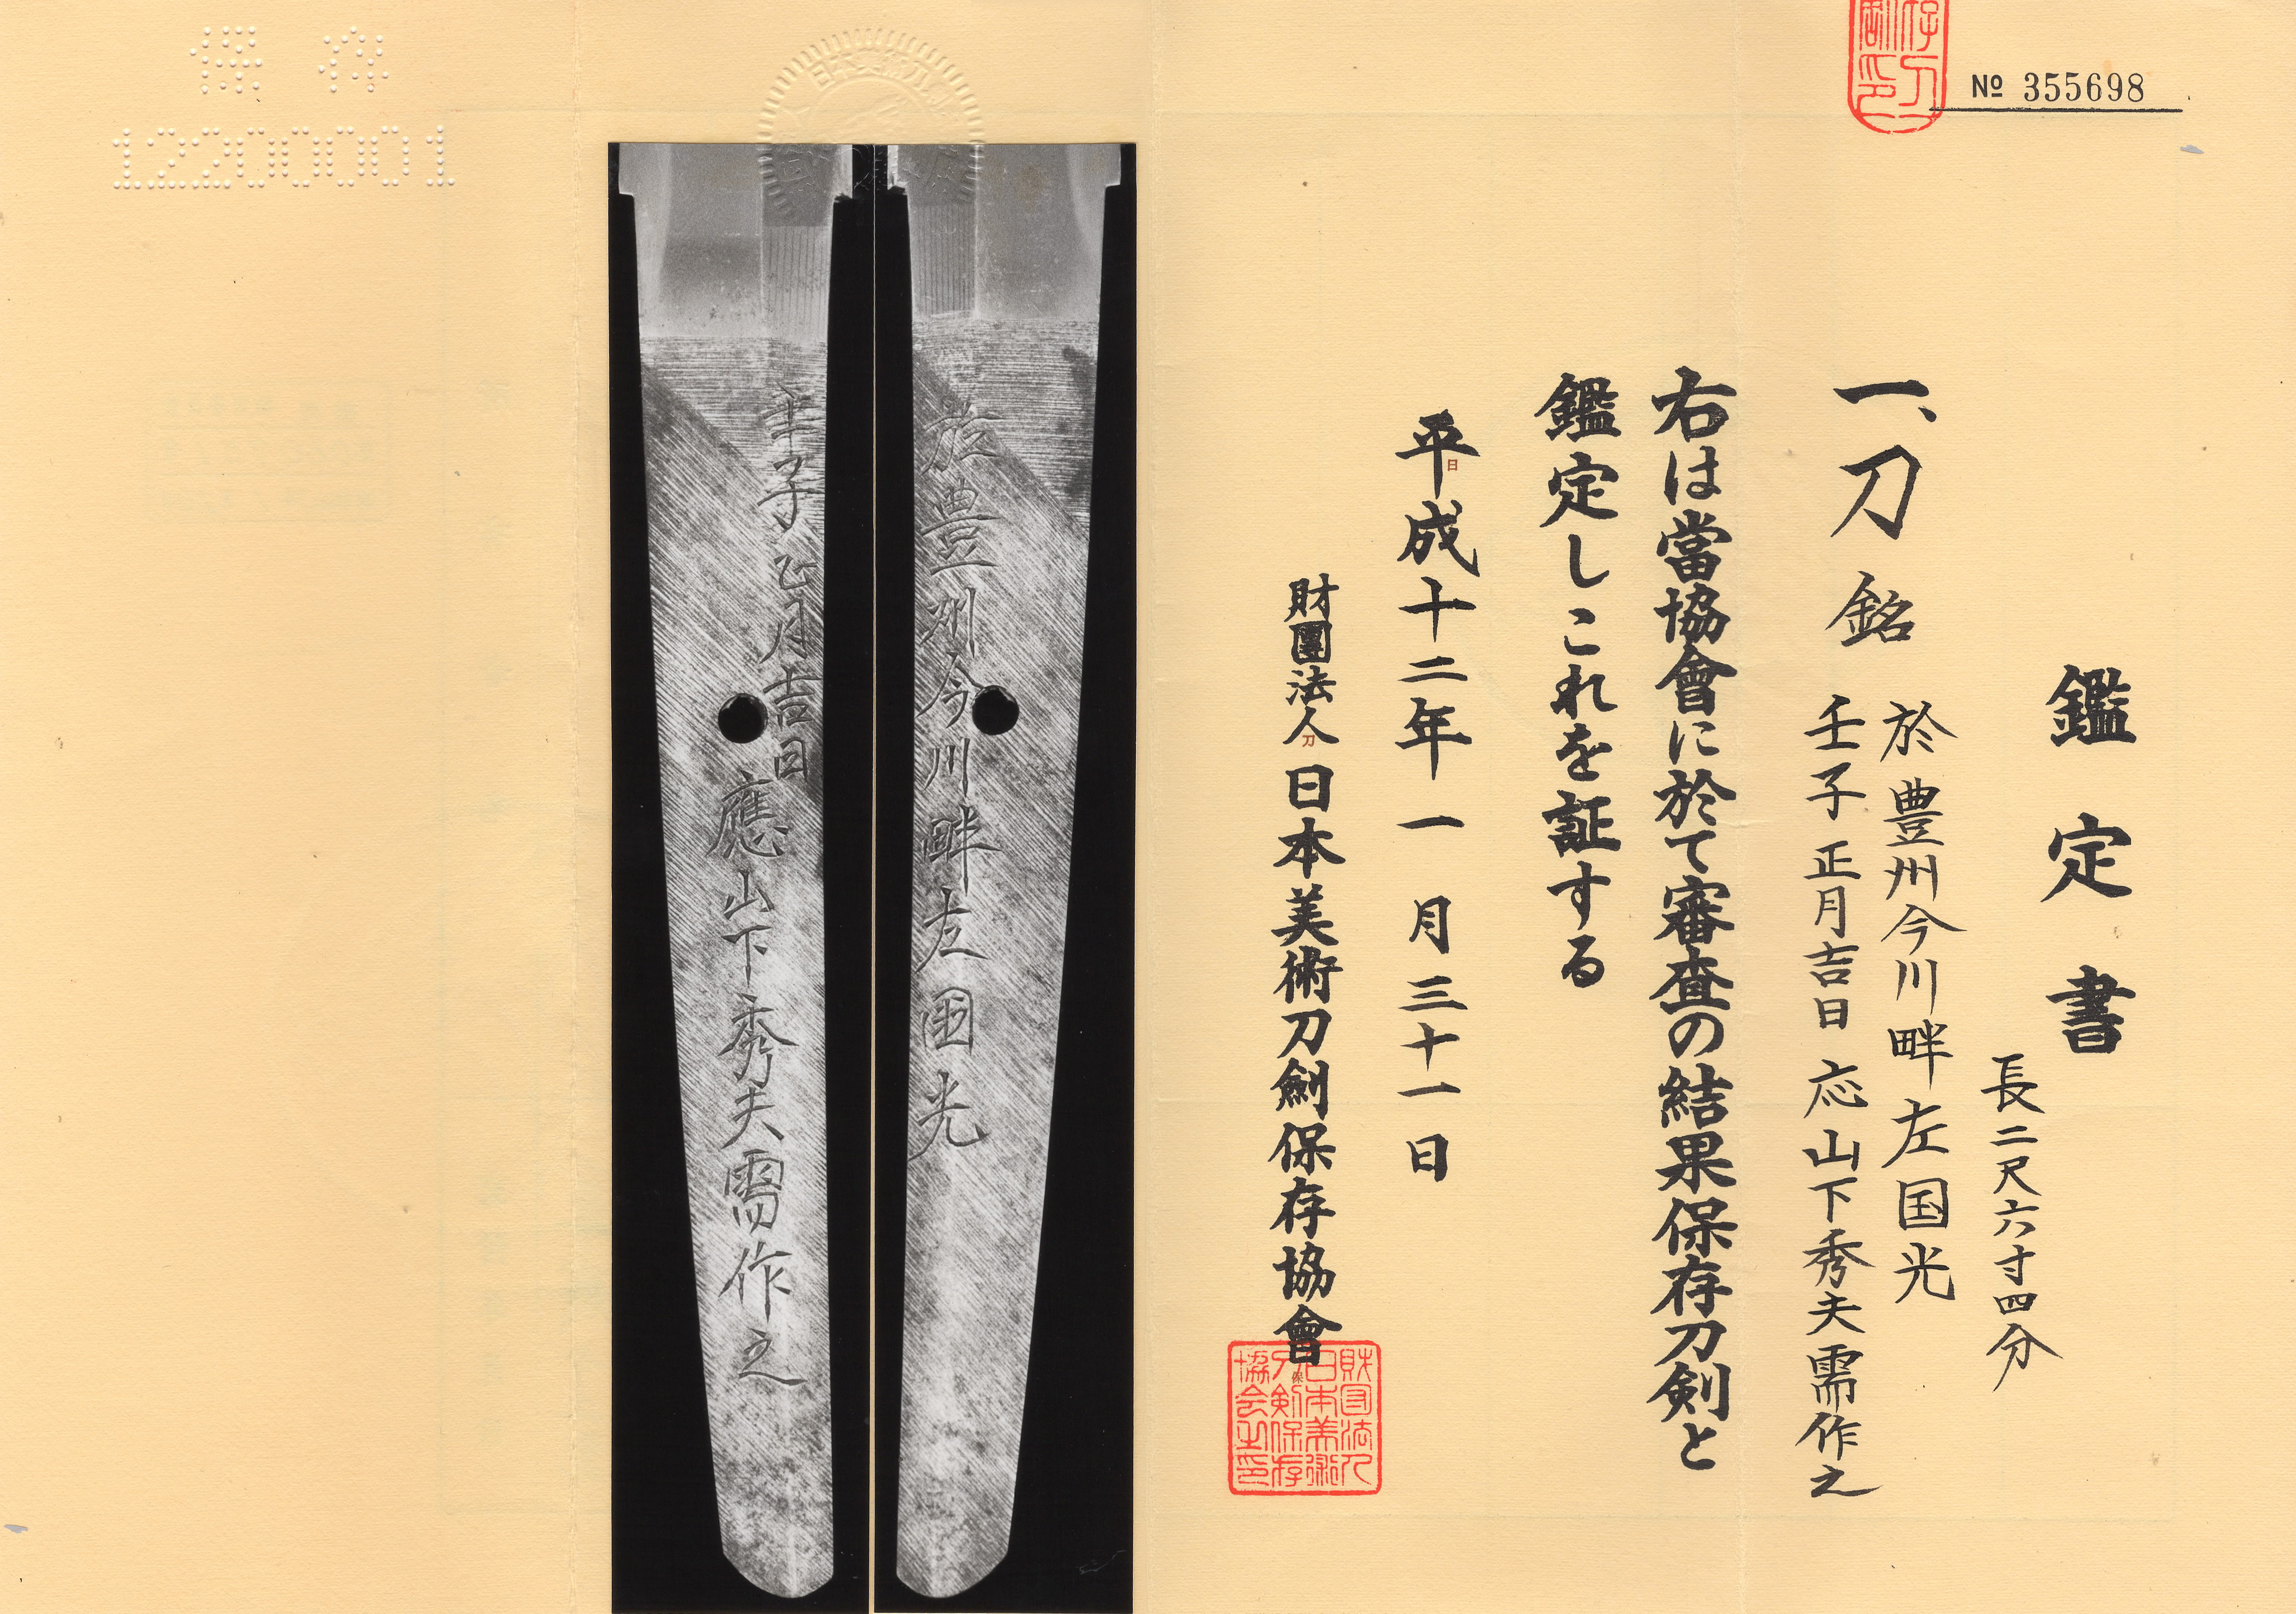 № 355698
鑑定書
長二尺六寸四分
一、刀 銘 於豊州今川畔左国光
壬子正月吉日 応山下秀夫需作之
右は當協會に於て審査の結果保存刀剣と
鑑定しこれを証する
平成十二年一月三十一日
財團法人 日本美術刀劍保存協會
財団法人
日本美術
刀剣保存
協会之印
於豊州今川畔左国光
壬子正月吉日
應山下秀夫需作之
保存
12200001